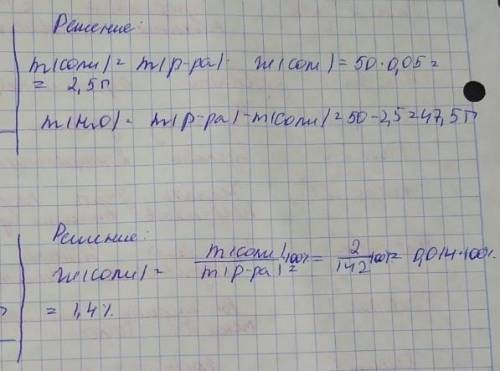 Решение:
m(соли) = m(р-ра) · w(соли) = 50 · 0,05 =
= 2,5г
m(H2O) = m(р-ра) - m(соли) = 50 - 2,5 = 47,5г
Решение:
w(соли) = m(соли)/m(р-ра) · 100% = 2/142 · 100% = 0,014 · 100%
= 1,4%